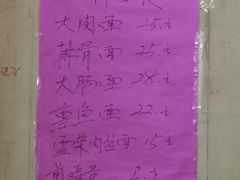 大肉面 25.元
排骨面 25元
大肠面 28.元
熏鱼面 22.元
雪菜肉丝面 15元
煎鸡蛋 2.元